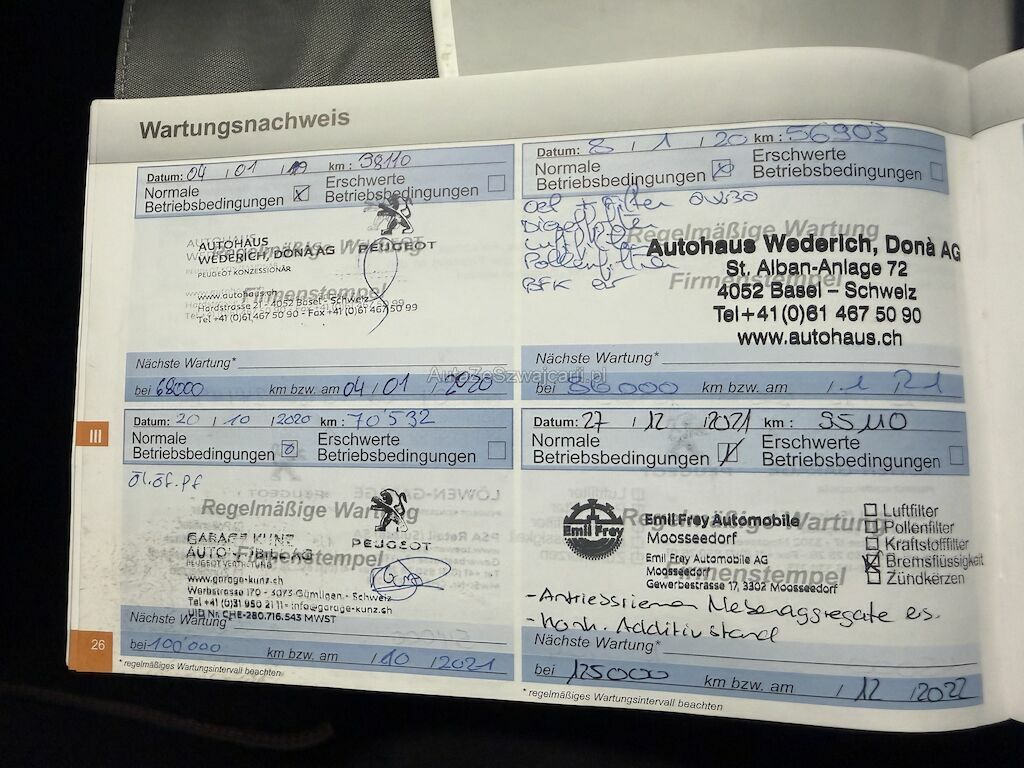 Wartungsnachweis
Datum: 04 / 01 / 19 km : 38110
Normale Betriebsbedingungen
Erschwerte Betriebsbedingungen
Regelmäßige Wartung
AUTOHAUS
WEDERICH, DONÀ AG
PEUGEOT KONZESSIONÄR
PEUGEOT
Firmenstempel
www.autohaus.ch
Hardstrasse 21 - 4052 Basel - Schweiz
Tel +41 (0)61 467 50 90 - Fax +41 (0)61 467 50 99
Nächste Wartung*
bei 68000 km bzw. am 04 / 01 / 2020
Datum: 8 / 1 / 20 km : 56903
Normale Betriebsbedingungen
Erschwerte Betriebsbedingungen
Oel + Filter 0W30
Luftfilter
Pollenfilter
Regelmäßige Wartung
Firmenstempel
Autohaus Wederich, Donà AG
St. Alban-Anlage 72
4052 Basel – Schweiz
Tel+41(0)61 467 50 90
www.autohaus.ch
Nächste Wartung*
bei 86000 km bzw. am / 1 / 21
AutoZeSzwajcarii.pl
Datum: 20 / 10 / 2020 km : 70'532
Normale Betriebsbedingungen
Erschwerte Betriebsbedingungen
Öl.Öf.Pf
Regelmäßige Wartung
Firmenstempel
GARAGE KUNZ
AUTOMOBILE AG
PEUGEOT VERTRETUNG
PEUGEOT
www.garage-kunz.ch
Worbstrasse 170 - 3073 Gümligen - Schweiz
Tel +41 (0)31 950 21 11 - info@garage-kunz.ch
UID Nr. CHE-280.716.543 MWST
Nächste Wartung*
bei 100'000 km bzw. am / 10 / 2021
* regelmäßiges Wartungsintervall beachten
Datum: 27 / 12 / 2021 km : 95110
Normale Betriebsbedingungen
Erschwerte Betriebsbedingungen
Regelmäßige Wartung
Firmenstempel
Emil Frey
Emil Frey Automobile
Moosseedorf
Emil Frey Automobile AG
Moosseedorf
Gewerbestrasse 17, 3302 Moosseedorf
Luftfilter
Pollenfilter
Kraftstofffilter
Bremsflüssigkeit
Zündkerzen
- Antriebsriemen Nebenaggregate es.
- Kontr. Additivstand
Nächste Wartung*
bei 125000 km bzw. am / 12 / 2022
* regelmäßiges Wartungsintervall beachten
III
26